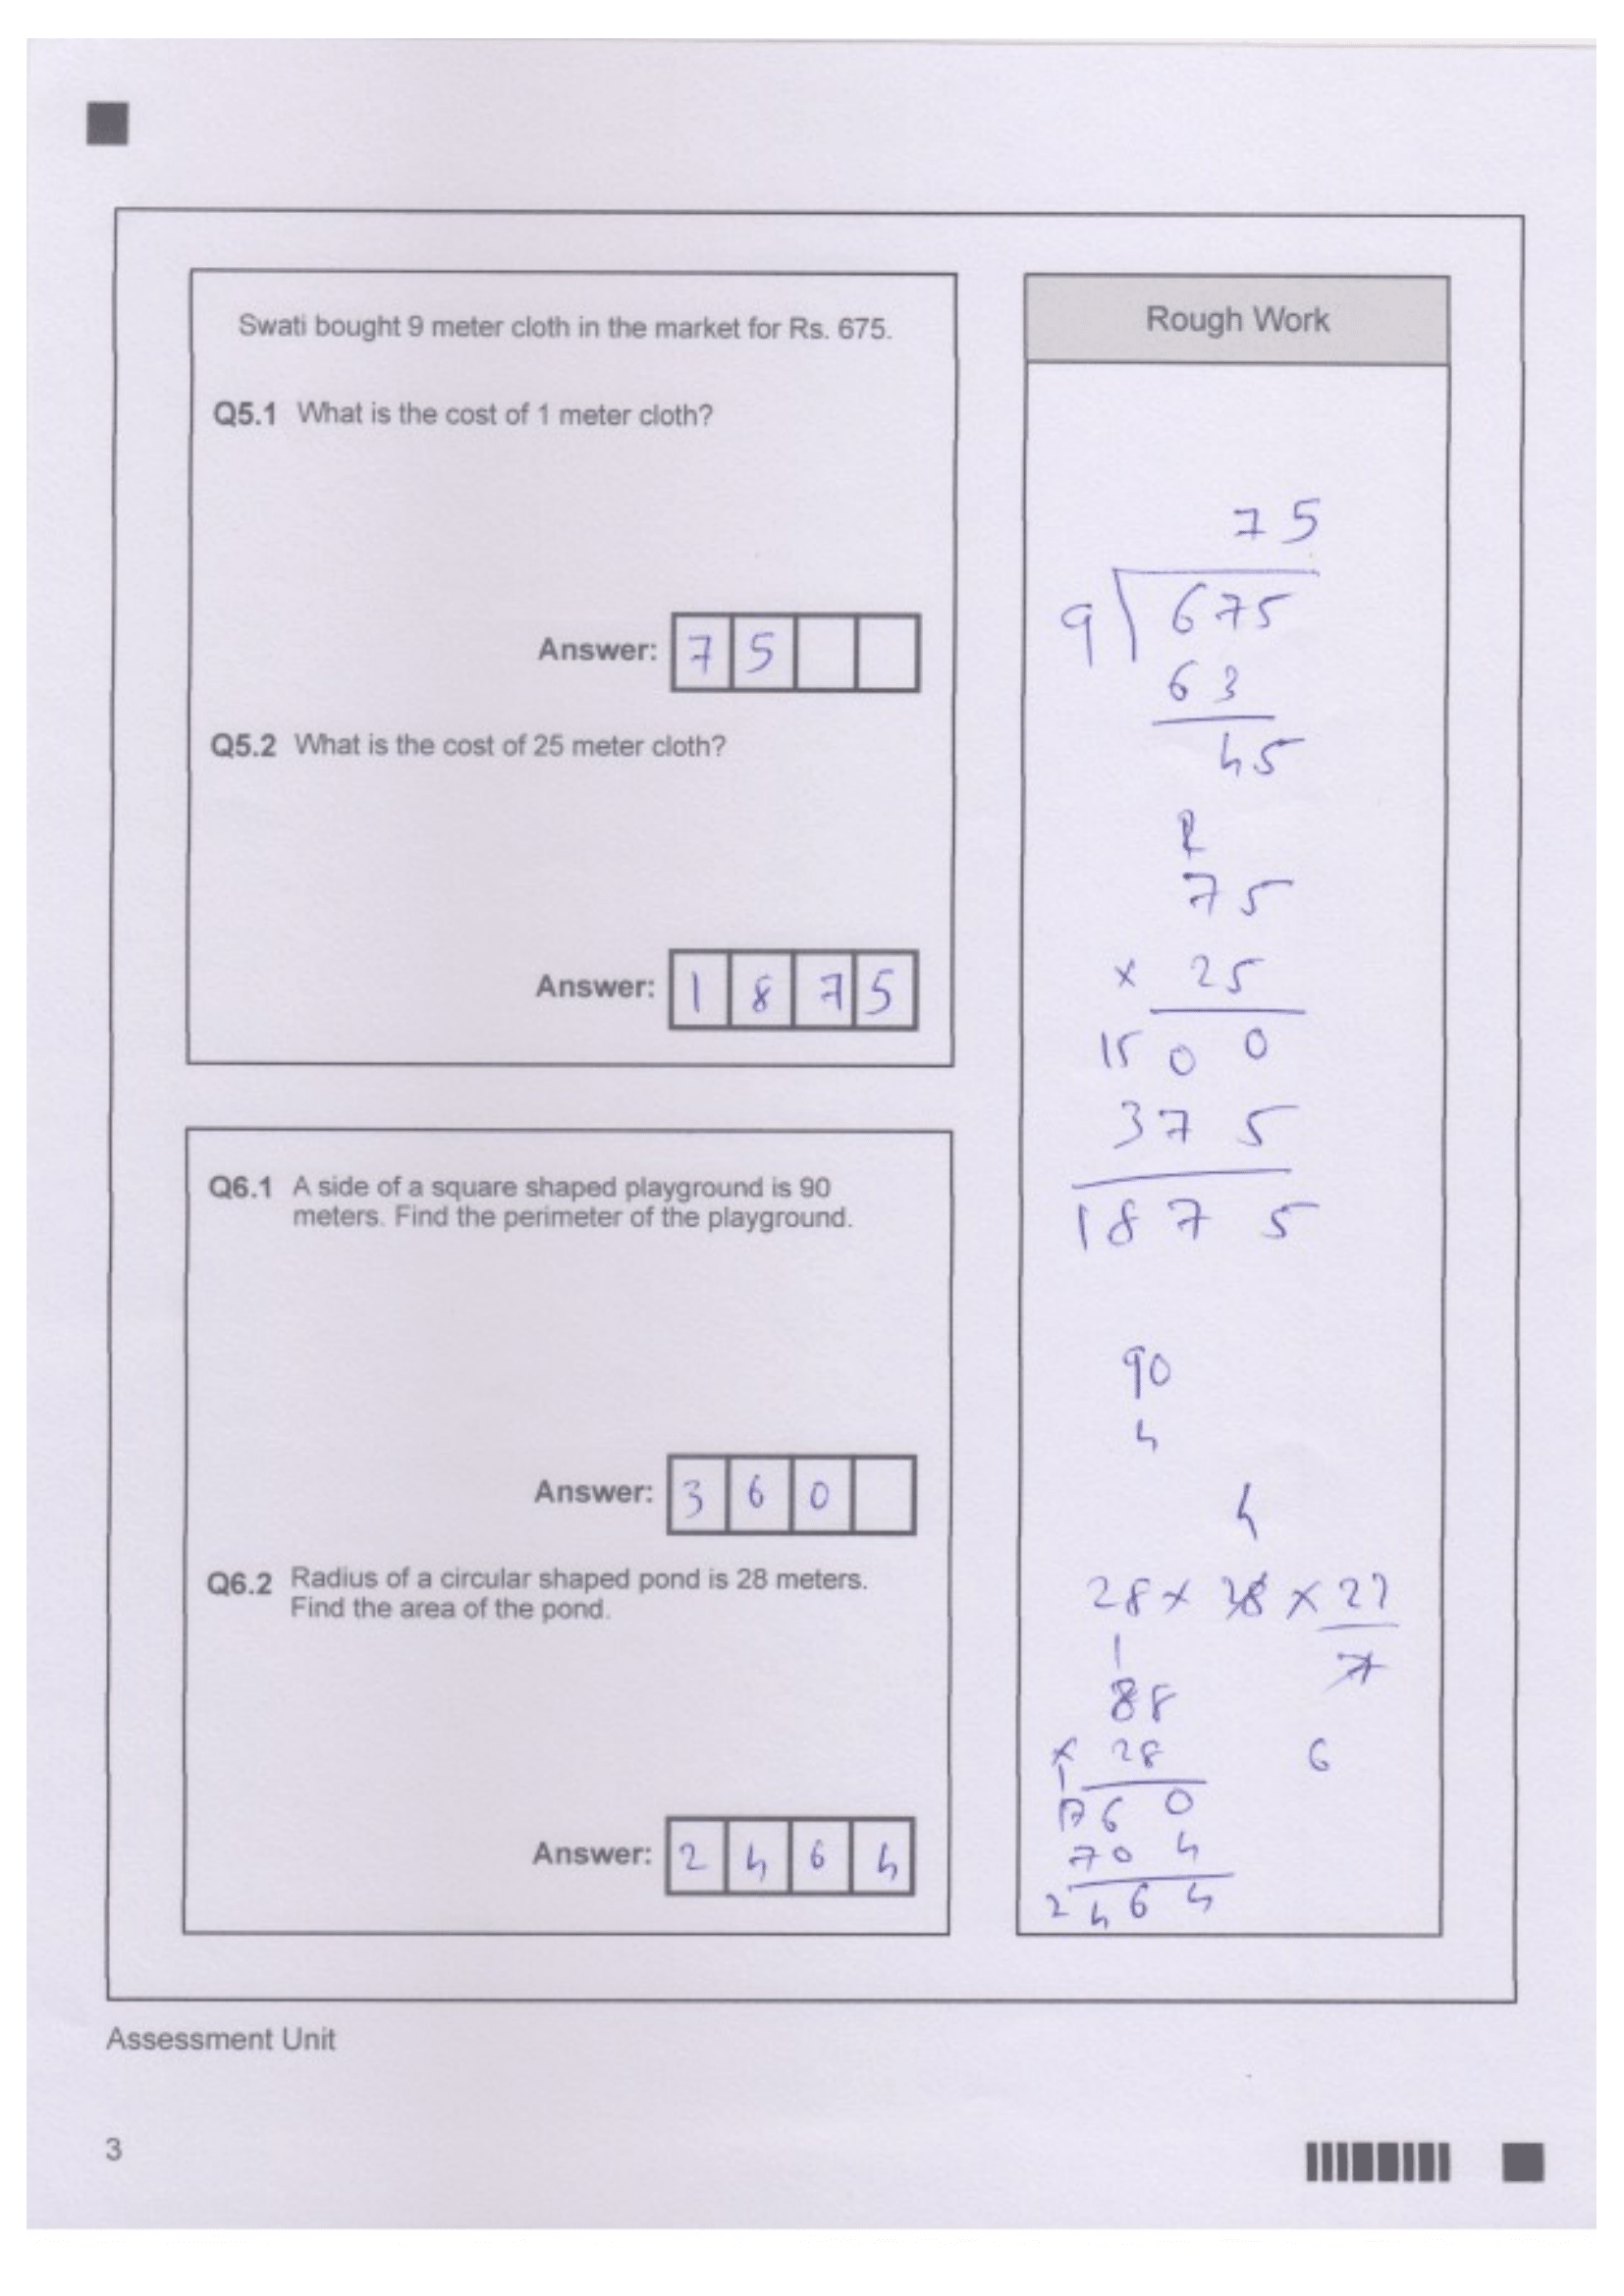 Swati bought 9 meter cloth in the market for Rs. 675.
Q5.1 What is the cost of 1 meter cloth?
Answer: 7 5
Q5.2 What is the cost of 25 meter cloth?
Answer: 1 8 7 5
Q6.1 A side of a square shaped playground is 90
meters. Find the perimeter of the playground.
Answer: 3 6 0
Q6.2 Radius of a circular shaped pond is 28 meters.
Find the area of the pond.
Answer: 2 4 6 4
Rough Work
75
9 675
63
45
75
× 25
15 0 0
37 5
187 5
90
4
4
28 × 28 × 22
7
1
88
× 28
6
1
176 0
70 4
2 4 6 4
Assessment Unit
3